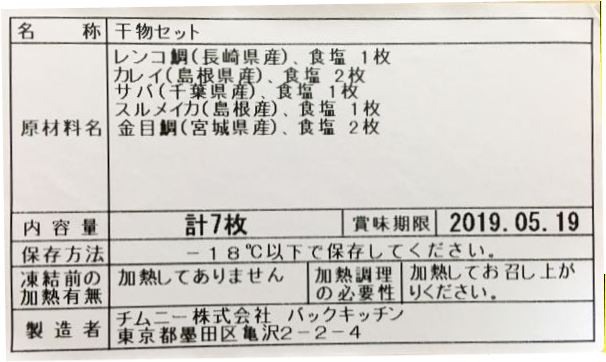 名称 干物セット
原材料名 レンコ鯛(長崎県産)、食塩 1枚
カレイ(島根県産)、食塩 2枚
サバ(千葉県産)、食塩 1枚
スルメイカ(島根産)、食塩 1枚
金目鯛(宮城県産)、食塩 2枚
内容量 計7枚 賞味期限 2019.05.19
保存方法 −18℃以下で保存してください。
凍結前の加熱有無 加熱してありません 加熱調理の必要性 加熱してお召し上がりください。
製造者 チムニー株式会社 バックキッチン
東京都墨田区亀沢2−2−4